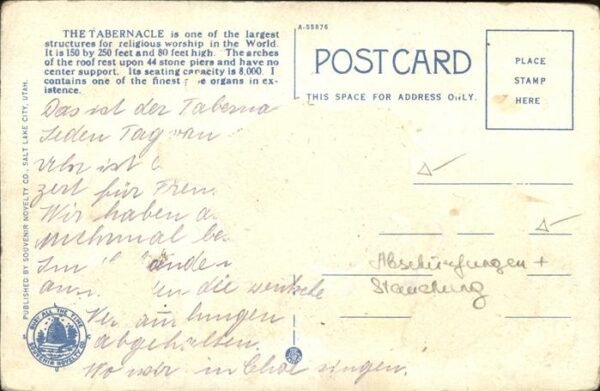 THE TABERNACLE is one of the largest
structures for religious worship in the World.
It is 150 by 250 feet and 80 feet high. The arches
of the roof rest upon 44 stone piers and have no
center support. Its seating capacity is 8,000. I
contains one of the finest organs in ex-
istence.
A-55876
POST CARD
THIS SPACE FOR ADDRESS ONLY.
PLACE
STAMP
HERE
Das ist der Taberna
Jeden Tag von
Uhr ist
zert für Frem
Wir haben
be
Im
die
Ver
abgehalten.
Wo wir im Chor singen.
Abschürfungen +
Stauchung
PUBLISHED BY SOUVENIR NOVELTY CO., SALT LAKE CITY, UTAH.
BUSY ALL THE TIME
SOUVENIR NOVELTY CO.